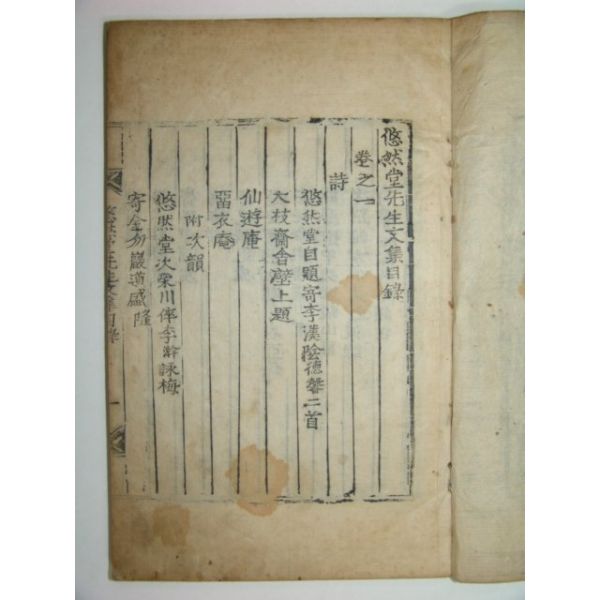 悠然堂先生文集目錄
卷之一
詩
悠然堂自題寄李漢陰德馨二首
大枝齋舍壁上題
仙遊庵
留衣庵
附次韻
悠然堂次榮川倅李瀚詠梅
寄金勿巖道盛隆
悠然堂先生文集目錄
一